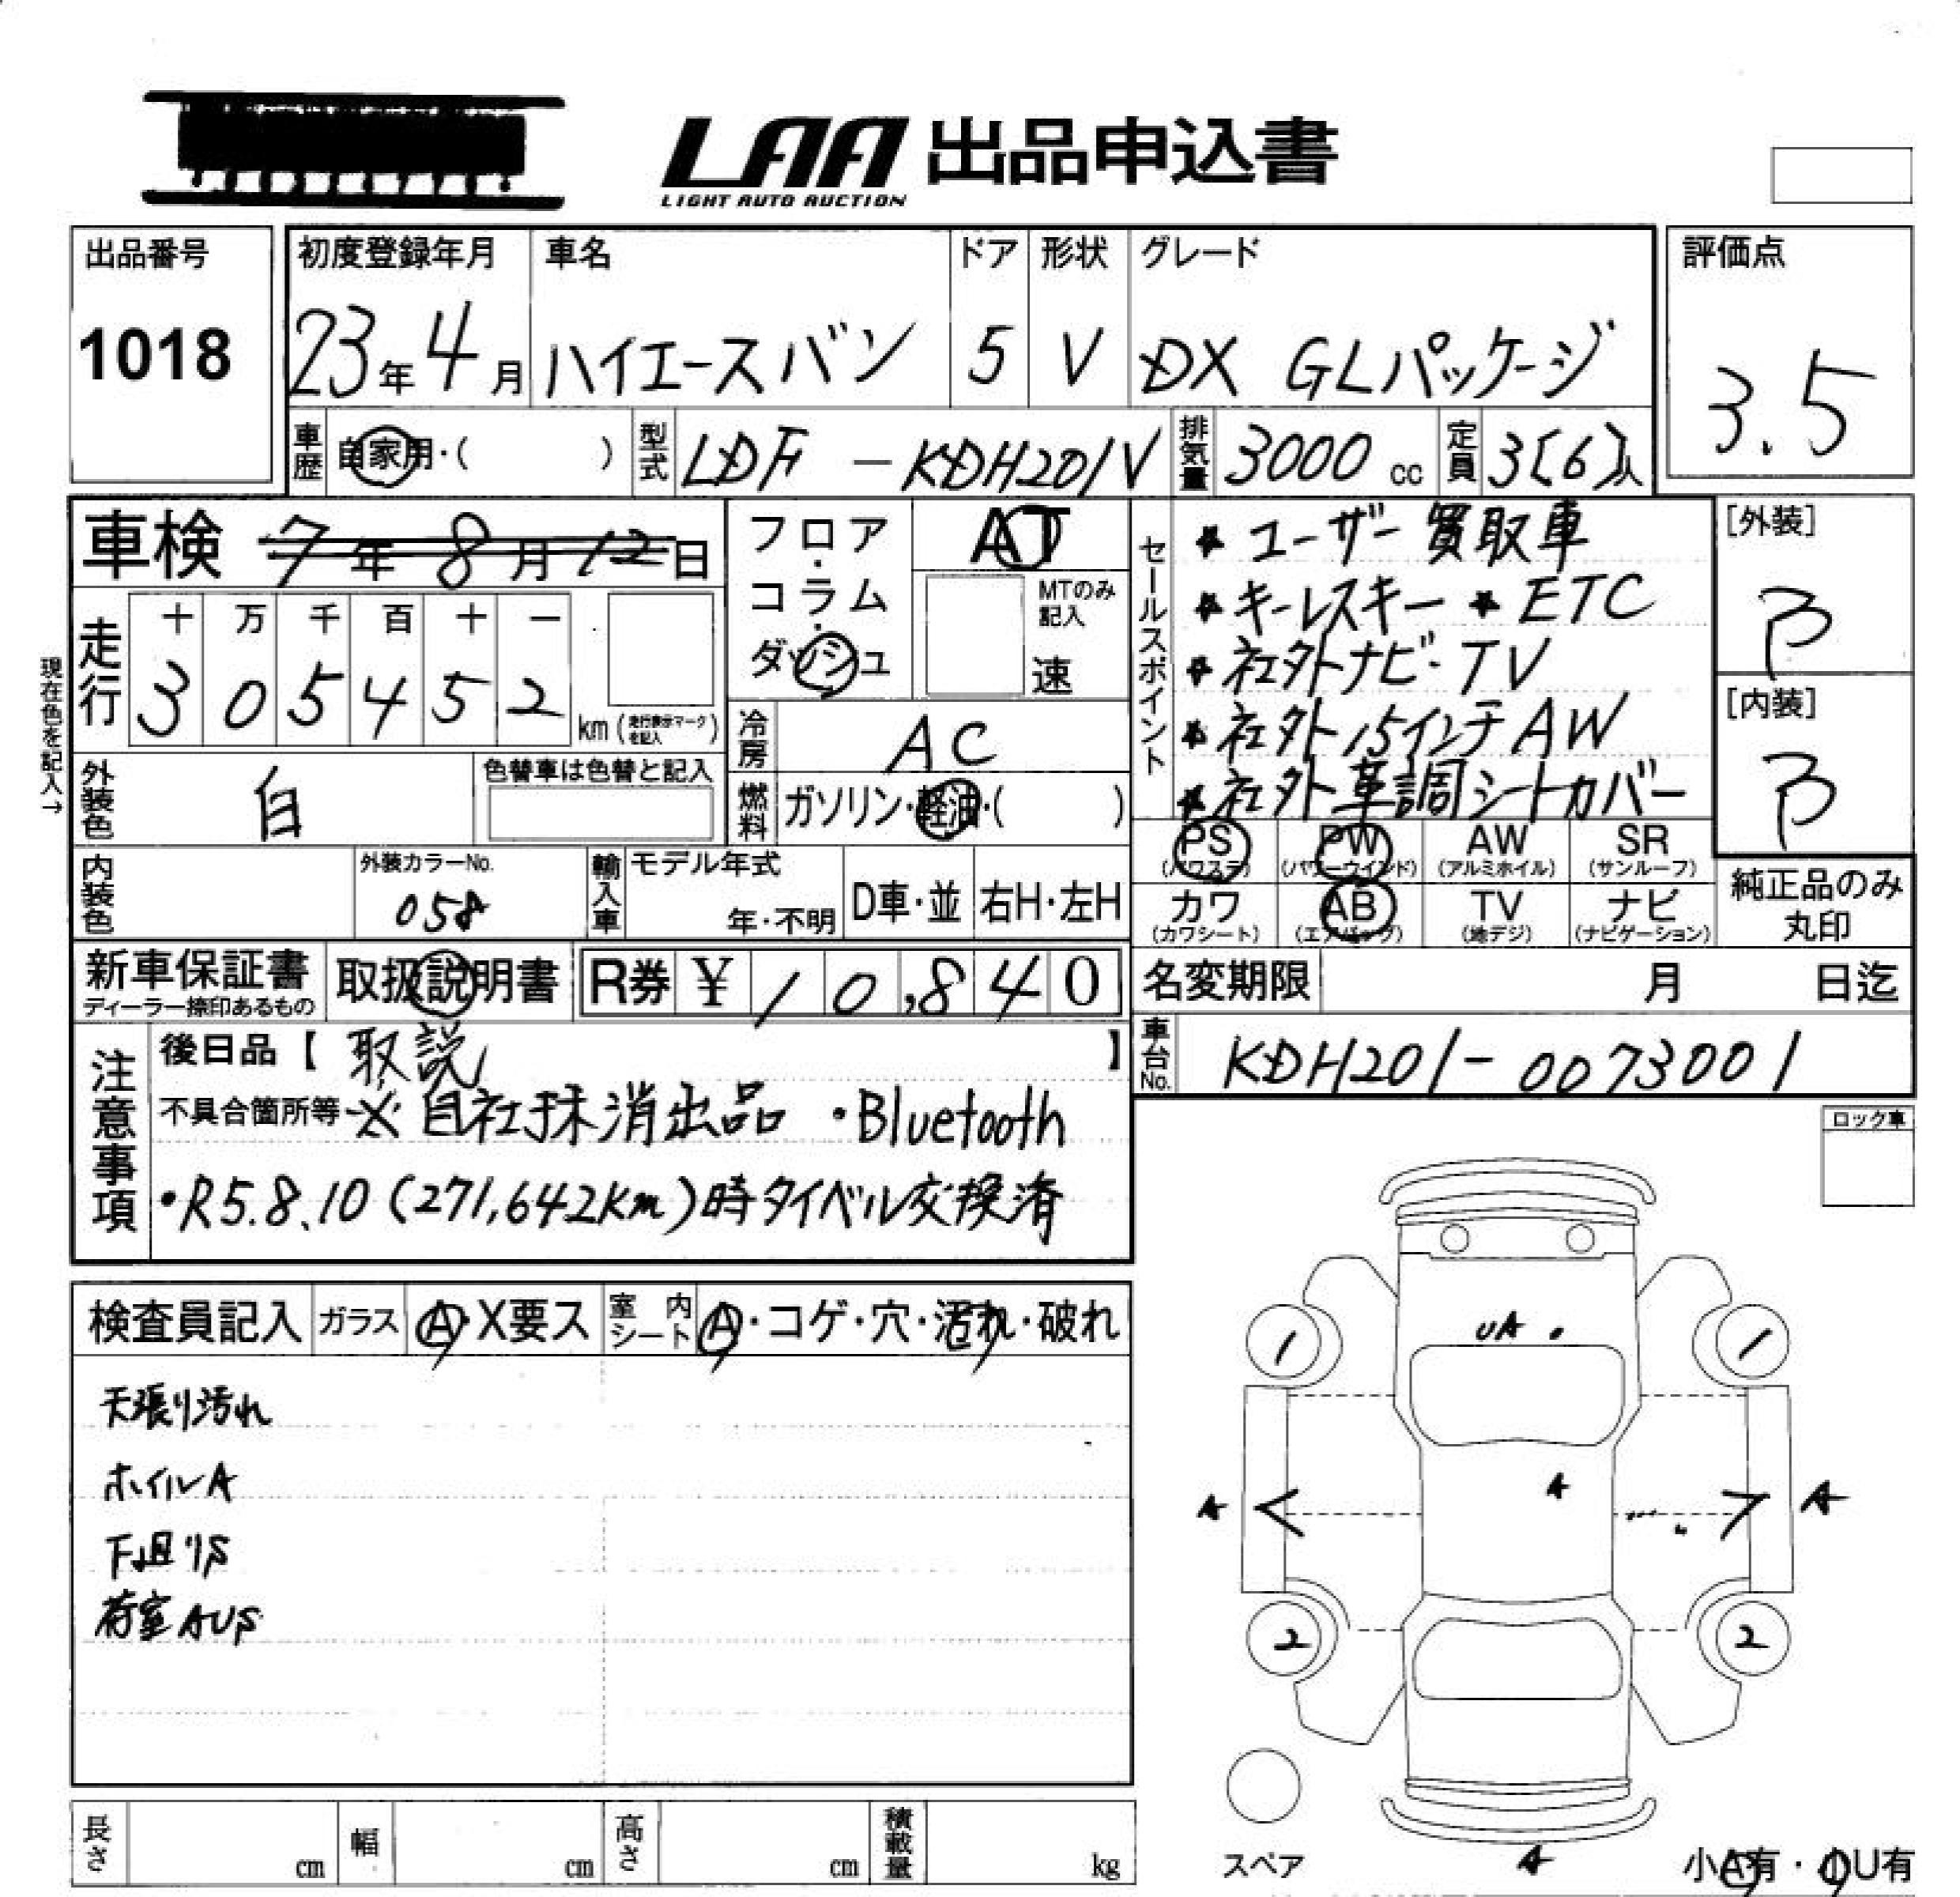 LAA 出品申込書
LIGHT AUTO AUCTION
出品番号
1018
初度登録年月
23年4月
車名
ハイエースバン
ドア
5
形状
V
グレード
DX GLパッケージ
評価点
3.5
車歴 自家用・( )
型式 LDF-KDH201V
排気量 3000cc
定員 3[6]人
車検 7年8月12日
フロア・コラム・ダッシュ
AT
MTのみ記入
速
走行
十 万 千 百 十 一
3 0 5 4 5 2
km(走行表示マークを記入)
現在色を記入→
冷房 AC
外装色 白
色替車は色替と記入
燃料 ガソリン・軽油・( )
内装色
外装カラーNo.
058
輸入車
モデル年式
年・不明
D車・並
右H・左H
新車保証書
ディーラー捺印あるもの
取扱説明書
R券 ¥10,840
セールスポイント
★ユーザー買取車
★キーレスキー ★ETC
★社外ナビ・TV
★社外15インチAW
★社外革調シートカバー
[外装]
B
[内装]
B
PS
(パワステ)
PW
(パワーウインド)
AW
(アルミホイル)
SR
(サンルーフ)
カワ
(カワシート)
AB
(エアバッグ)
TV
(地デジ)
ナビ
(ナビゲーション)
純正品のみ
丸印
名変期限 月 日迄
車台No. KDH201-0073001
注意事項
後日品【取説】
不具合箇所等 ※自社抹消出品 ・Bluetooth
・R5.8.10(271,642km)時タイベル交換済
ロック車
検査員記入
ガラス A・X要ス
室内シート A・コゲ・穴・汚れ・破れ
天張り汚れ
ホイルA
下廻りS
荷室AUS
UA
1
1
A
A
A
2
2
スペア
A
小A有・小U有
長さ cm
幅 cm
高さ cm
積載量 kg